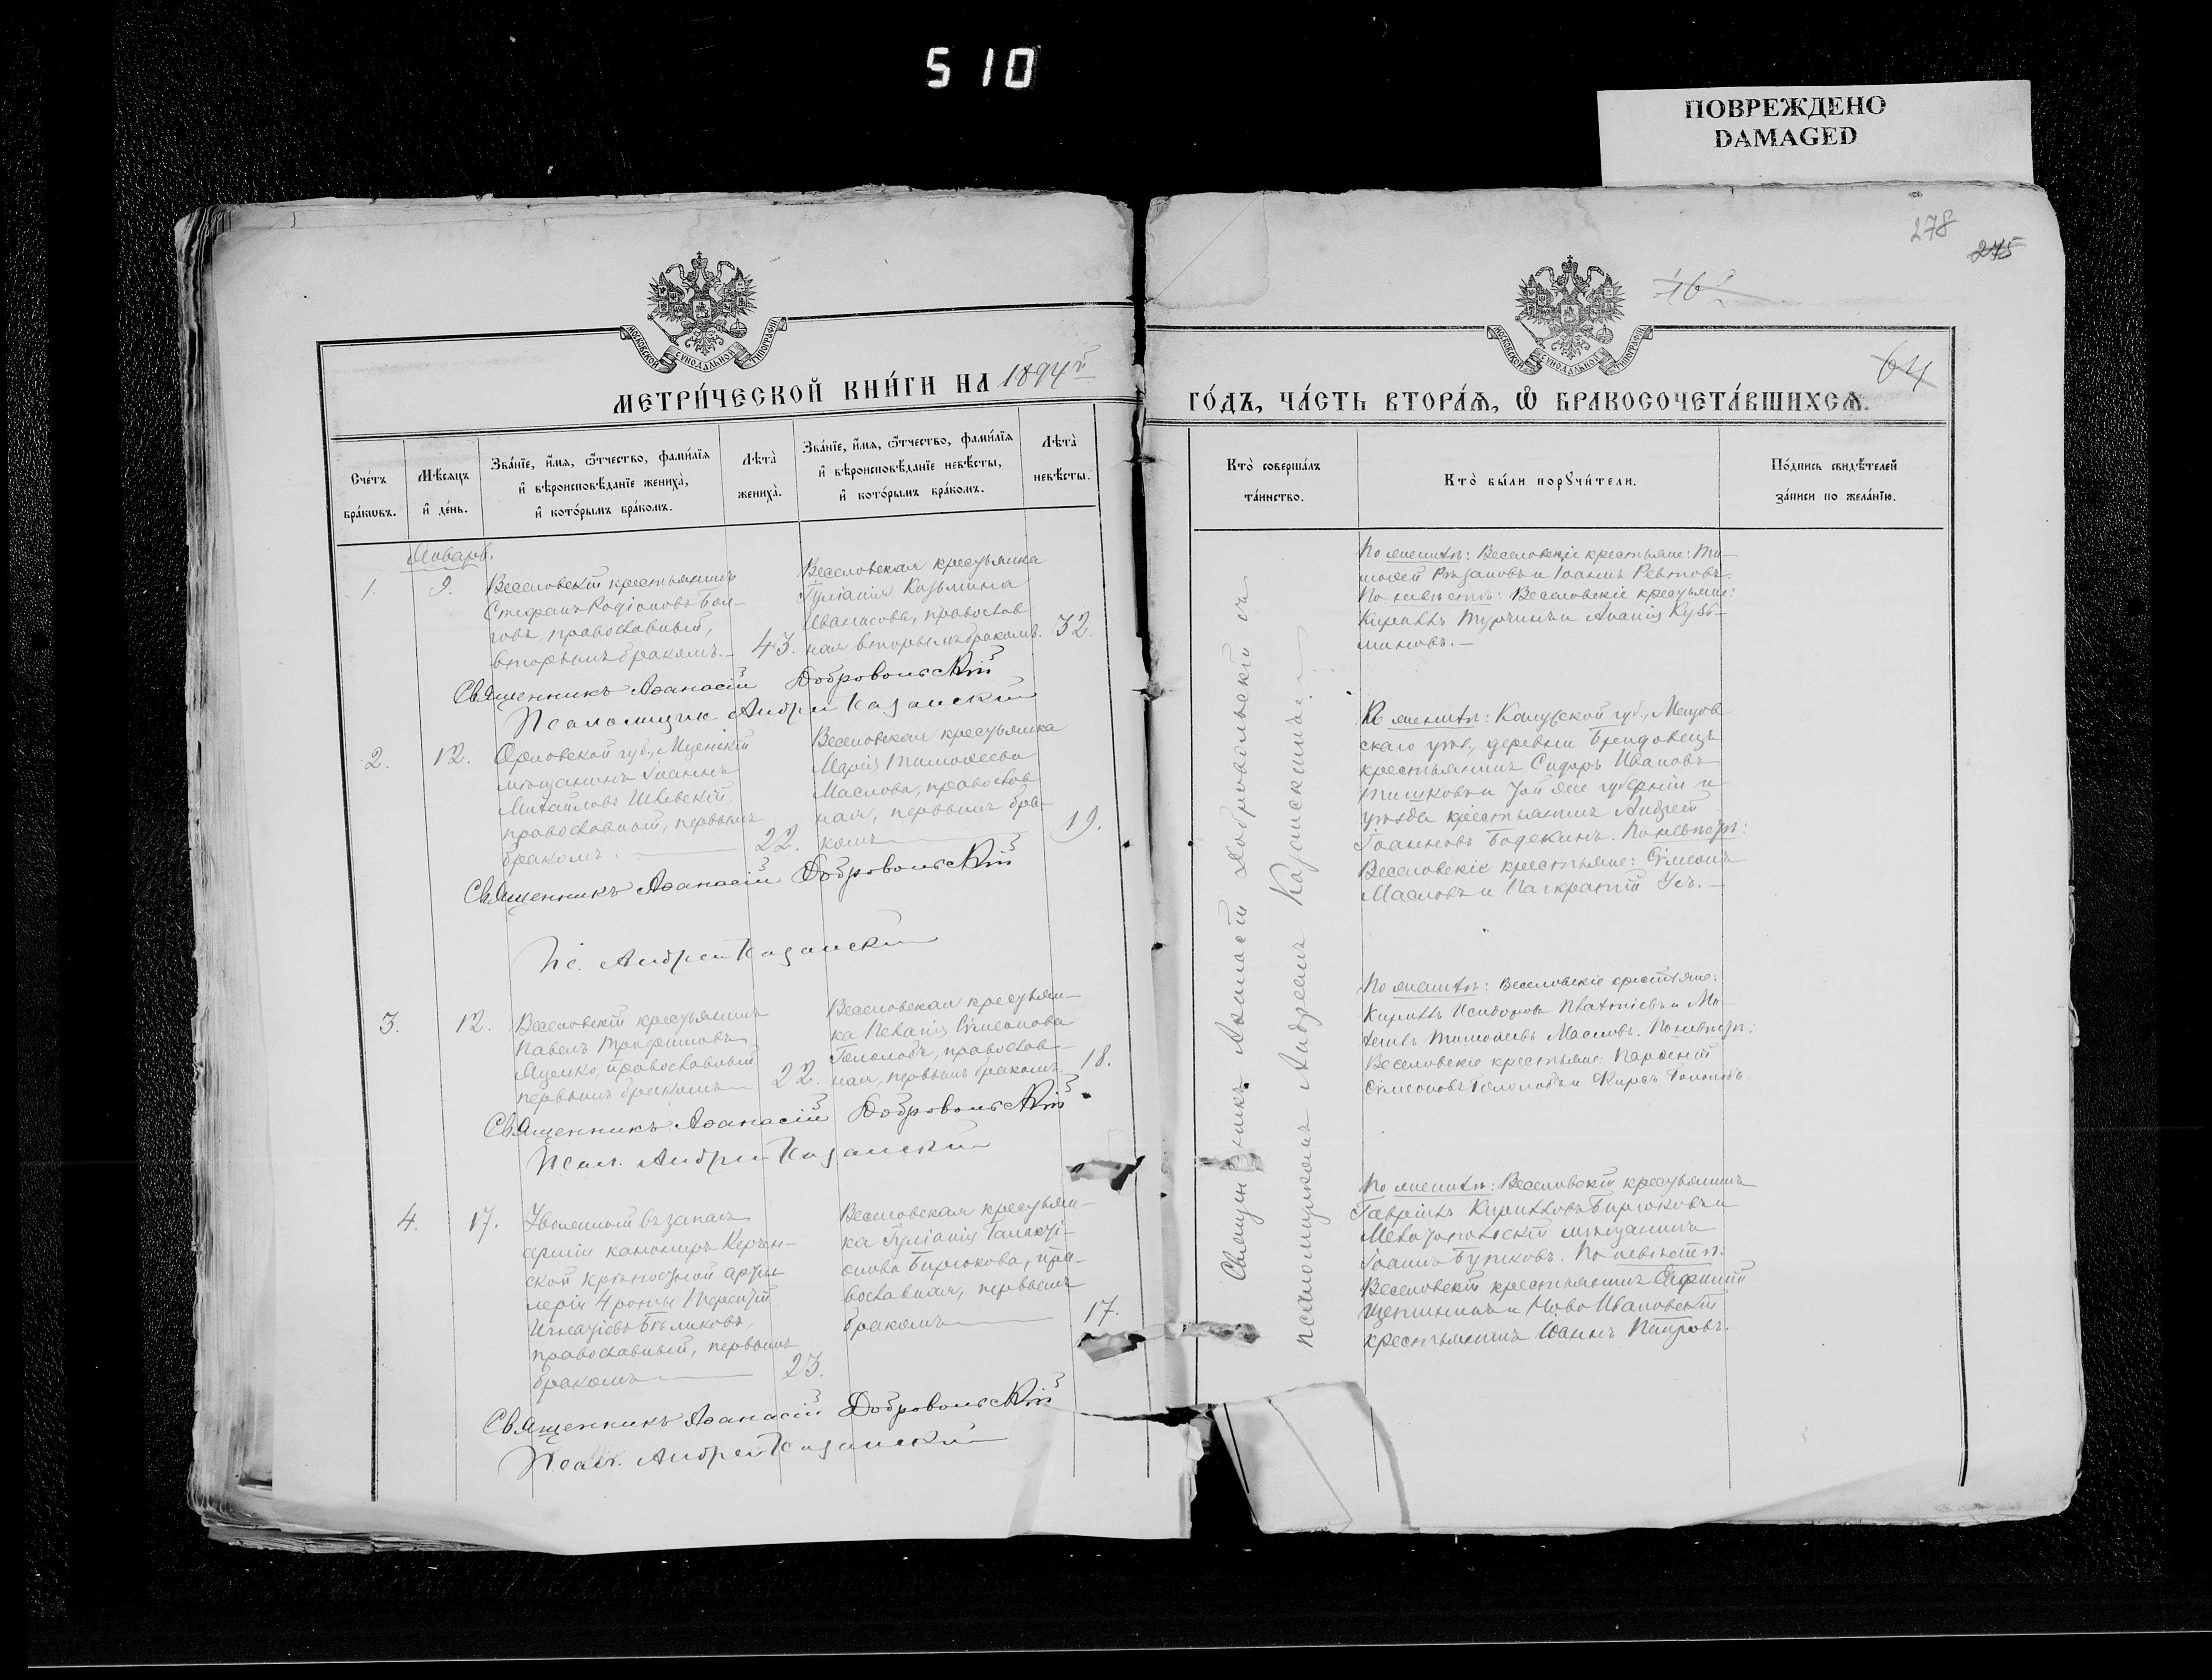 510
ПОВРЕЖДЕНО
DAMAGED
278
275
64
МОСКОВСКОЙ СѴНОДАЛЬНОЙ ТИПОГРАФІИ
МЕТРИ́ЧЕСКОЙ КНИ́ГИ НА 1894й
Сче́тъ бра́кѡвъ.
Мѣ́сяцъ и҆ де́нь.
Зва́нїе, и҆́мя, ѻ҆́тчество, фами́лїя
и҆ вѣроисповѣ́данїе жениха̀,
и҆ кото́рымъ бра́комъ.
Лѣта̀ жениха̀.
Зва́нїе, и҆́мя, ѻ҆́тчество, фами́лїя
и҆ вѣроисповѣ́данїе невѣ́сты,
и҆ кото́рымъ бра́комъ.
Лѣта̀ невѣ́сты.
Январь.
1.
9.
Веселовскій крестьянинъ
Стефанъ Родіоновъ
православный,
вторымъ бракомъ.
43.
Веселовская крестьянка
Іуліанія Козьмина
православ-
ная вторымъ бракомъ.
32.
Священникъ Аѳанасій Добровольскій
Псаломщик Андрей Казанскій
2.
12.
Орловской губ., Мценскій
мѣщанинъ Іоаннъ
Михайловъ
православный, первымъ
бракомъ.
22.
Веселовская крестьянка
Марія Тимоѳеева
Маслова, православ-
ная, первымъ бра-
комъ
19.
Священникъ Аѳанасій Добровольскій
Пс. Андрей Казанскій
3.
12.
Веселовскій крестьянинъ
Павелъ Трофимовъ
Яценко, православный
первымъ бракомъ
22.
Веселовская крестьян-
ка Пелагія Сѵмеонова
Гололобъ, православ-
ная, первымъ бракомъ.
18.
Священникъ Аѳанасій Добровольскій
Псал. Андрей Казанскій
4.
17.
Уволенный въ запасъ
арміи канониръ Керчен-
ской крѣпостной артил-
леріи 4 роты Терентій
Игнатіевъ Бѣликовъ,
православный, первымъ
бракомъ
23.
Веселовская крестьян-
ка Іуліанія
Бирюкова, пра-
вославная, первымъ
бракомъ
17.
Священникъ Аѳанасій Добровольскій
Псал. Андрей Казанскій
МОСКОВСКОЙ СѴНОДАЛЬНОЙ ТИПОГРАФІИ
ГО́ДЪ, ЧА́СТЬ ВТОРА́Я, Ѡ҆ БРАКОСОЧЕТА́ВШИХСЯ.
Кто̀ соверша́лъ
та́инство.
Кто̀ бы́ли порꙋчи́тели.
По́дпись свидѣ́телей
за́писи по жела́нїю.
Священникъ Аѳанасій Добровольскій съ
псаломщикомъ Андреемъ Казанскимъ.
По женихѣ: Веселовскіе крестьяне: Ти-
моѳей Рѣзановъ и Іоаннъ
По невѣстѣ: Веселовскіе крестьяне:
Кириллъ Турчинъ и Ананія Кузь-
миновъ.
По женихѣ: Калужской губ., Мещов-
скаго уѣз., деревни
крестьянинъ Сидоръ Ивановъ
Тишковъ и той же губерніи и
уѣзда крестьянинъ Андрей
Іоанновъ Бодекинъ. По невѣстѣ:
Веселовскіе крестьяне: Сѵмеонъ
Масловъ и Панкратій Усъ.
По женихѣ: Веселовскіе крестьяне:
Кириллъ Исидоровъ и
Тимоѳеевъ Масловъ. По невѣстѣ:
Веселовскіе крестьяне: Парѳеній
Сѵмеоновъ Гололобъ и Киръ Гололобъ.
По женихѣ: Веселовскій крестьянинъ
Гавріилъ Кирилловъ Бирюковъ и
Мелитопольскій мѣщанинъ
Іоаннъ Бутковъ. По невѣстѣ:
Веселовскій крестьянинъ Евфимій
Щепининъ и Ново Ивановскій
крестьянинъ Іоаннъ Петровъ.